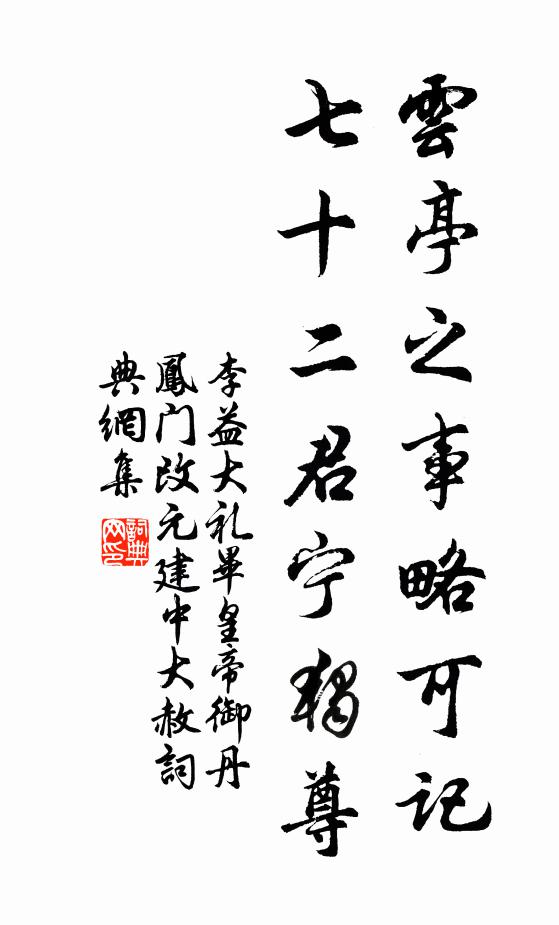 雲亭之事略可記
七十二君宁獨尊
李益大礼畢皇帝御丹
鳳门改元建中大赦詞
典網集
詞典网印